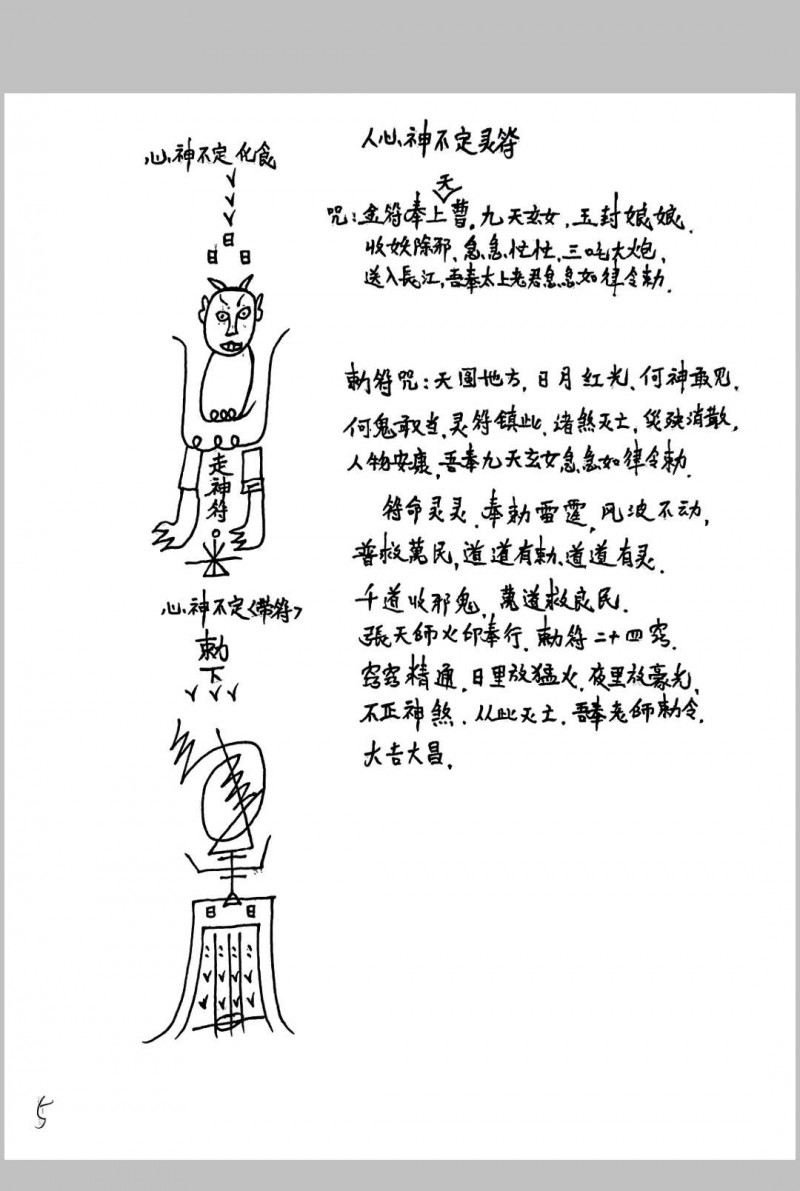 人心神不定灵符
天
咒：金符奉上曹，九天玄女，玉封娘娘，
收妖除邪，急急忙忙，三吼大炮，
送入長江，吾奉太上老君急急如律令勅．
勅符咒：天圆地方，日月红光，何神敢见，
何鬼敢当，灵符镇此，诸煞灭亡，災殃消散，
人物安康，吾奉九天玄女急急如律令勅．
符命灵灵，奉勅雷霆，风波不动，
普救萬民，道道有勅，道道有灵．
千道收邪鬼，萬道救良民．
張天師火印奉行，勅符二十四窍．
窍窍精通，日里放猛火，夜里放豪光，
不正神煞，从此灭亡，吾奉老師勅令．
大吉大昌．
心神不定化食
日
日 日
走神符
心神不定<带符>
勅
下
日 日
5